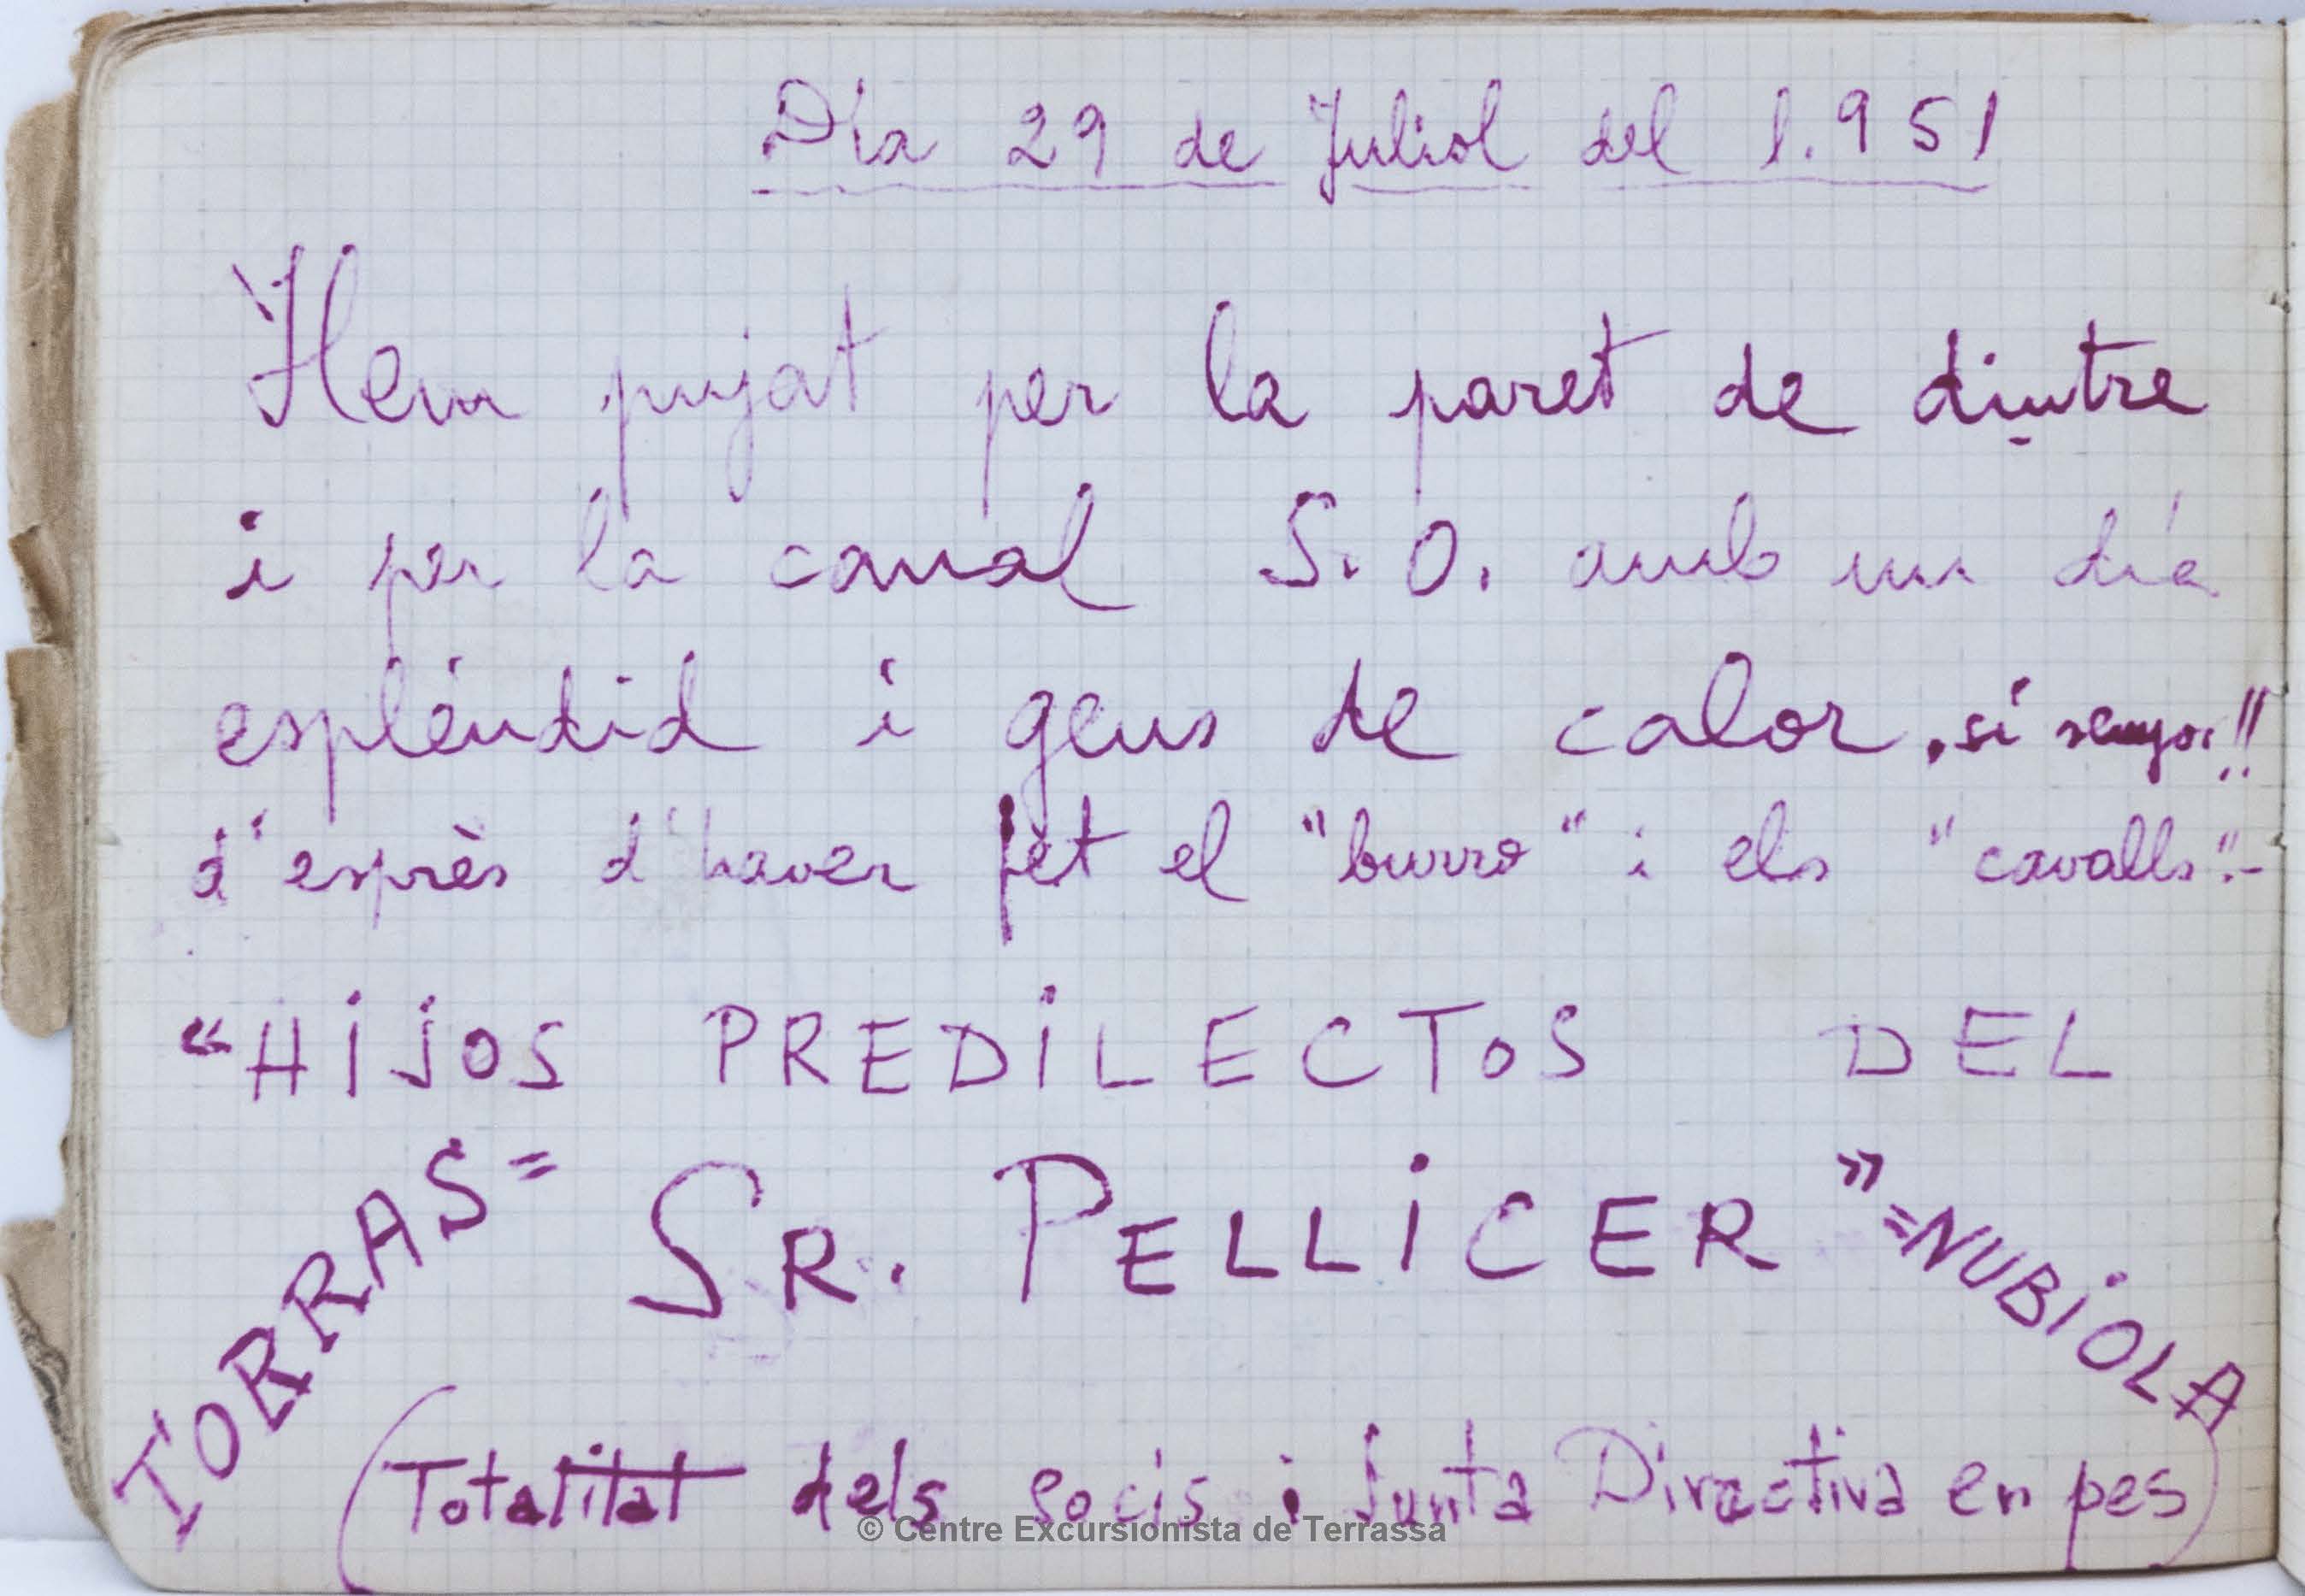 Día 29 de Juliol del 1.951
Hem pujat per la paret de dintre
i per la canal S.O. amb un día
espléndid i gens de calor, si senyor!!
d'esprès d'haver fet el "burro" i els "cavalls".-
"HIJOS PREDILECTOS DEL
TORRAS = SR. PELLICER" = NUBIOLA
(Totalitat dels socis i Junta Directiva en pes)
© Centre Excursionista de Terrassa